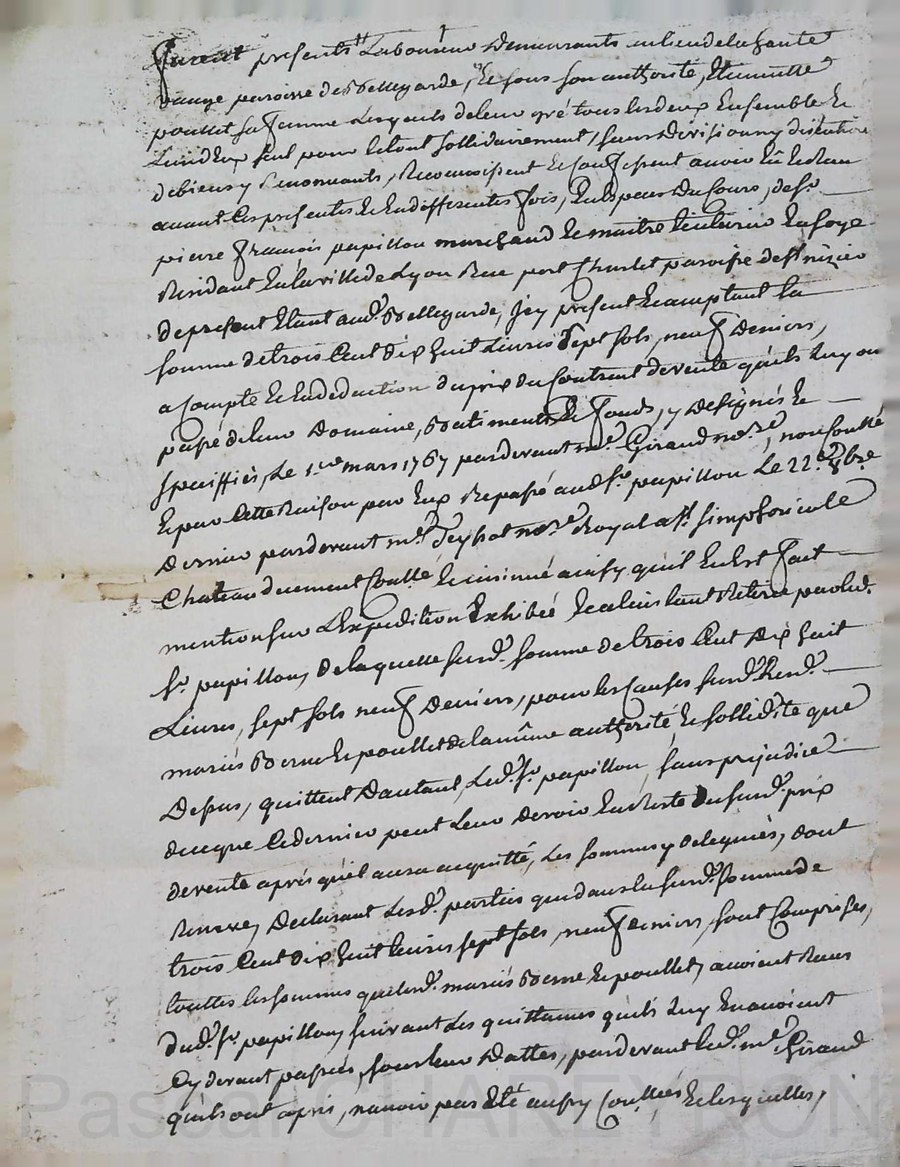 furent presents Laboureur Demeurants au lieu de la
paroisse de Bellegarde, Et sous son authorité,
poullet sa femme Lesquels de leur gré tous les deux Ensemble Et
L'un d'Eux seul pour Le tout sollidairement, sans Division ny discution
de biens y Renonçants, Reconnoissent Et Confessent avoir Eû Et Receu
avant Ces presentes Et En differentes fois, En Especes Du Cours, de Sr.
pierre françois papillon marchand Et maitre En soye
Residant En la ville de Lyon Rue port Charlet paroisse de St. nizier
de present Etant aud. Bellegarde, Jcy present Et acceptant La
somme de trois Cent dix huit Livres Sept sols, neuf Deniers,
a Compte Et En deduction du prix du Contract de vente qu'ils Luy ont
passé de Leur Domaine, Batiments Et fonds, y Designés Et
speciffiés, Le 1.er mars 1767 pardevant me. Giraud nore., non Coullé
Et pour Cette Raison par Eux Repassé aud. Sr. papillon Le 22.e 8bre
Dernier pardevant me. nore. Royal a St. Simphorien le
Chateau duement Coullé Et insinué ainsy qu'il En Est fait
mention sur L'Expedition Exhibée Et a l'instant Retirée par led.
Sr. papillon, de laquelle susd. somme de trois Cent Dix huit
Livres, sept sols neuf Deniers, pour les Causes susd.
mariés Et poullet de la même authorité Et sollidité que
Dessus, quittent D'autant, Led. Sr. papillon, sans prejudice
de ce que Ce dernier peut Leur devoir En Reste Du susd. prix
de vente après qu'il aura acquitté, Les sommes y deleguées, dont
Declarant Lesd. parties que dans la susd. Somme de
trois Cent dix huit Livres sept sols, neuf deniers, sont Comprises,
touttes les sommes que lesd. mariés Et poullet, avoient Reçues
Dud. Sr. papillon, suivant Les quittances qu'ils Luy En avoient
Cy devant passées, sous leur Dattes, pardevant led. me. Giraud
qu'ils ont apris, n'avoir pas Eté aussy Coullées Et lesquelles,
Pascal CHAREYRON